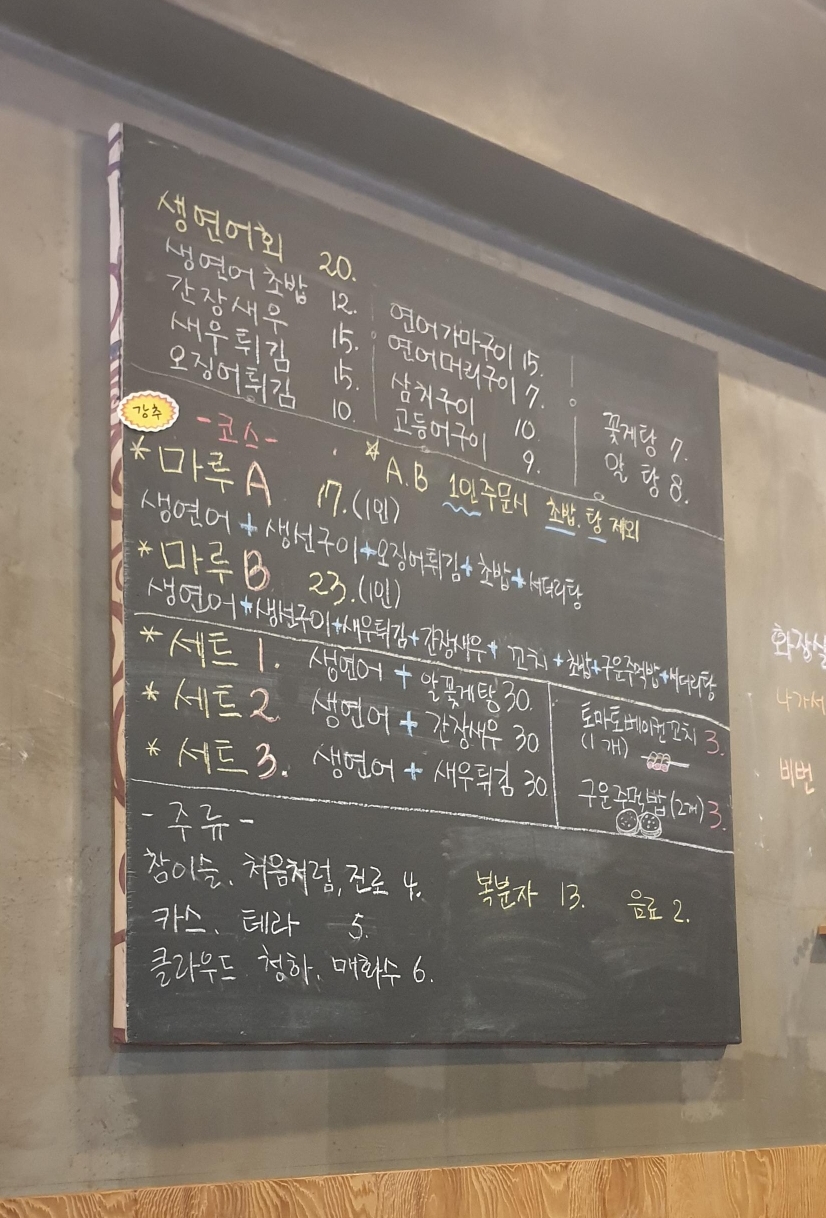 생연어회 20.
생연어 초밥 12.
간장새우 15.
새우튀김 15.
오징어튀김 10.
연어가마구이 15.
연어머리구이 7.
삼치구이 10.
고등어구이 9.
꽃게탕 7.
알탕 8.
강추
-코스-
* A.B 1인주문시 초밥.탕 제외
* 마루 A 17.(1인)
생연어 + 생선구이+오징어튀김+초밥+서더리탕
* 마루 B 23.(1인)
생연어+생선구이+새우튀김+간장새우+꼬치+초밥+구운주먹밥+서더리탕
* 세트 1. 생연어 + 알꽃게탕 30.
* 세트 2. 생연어 + 간장새우 30
* 세트 3. 생연어 + 새우튀김 30
토마토베이컨꼬치 3.
(1개)
구운주먹밥(2개) 3.
-주류-
참이슬. 처음처럼, 진로 4.
카스. 테라 5.
클라우드 청하. 매화수 6.
복분자 13.
음료 2.
화장실
나가서
비번